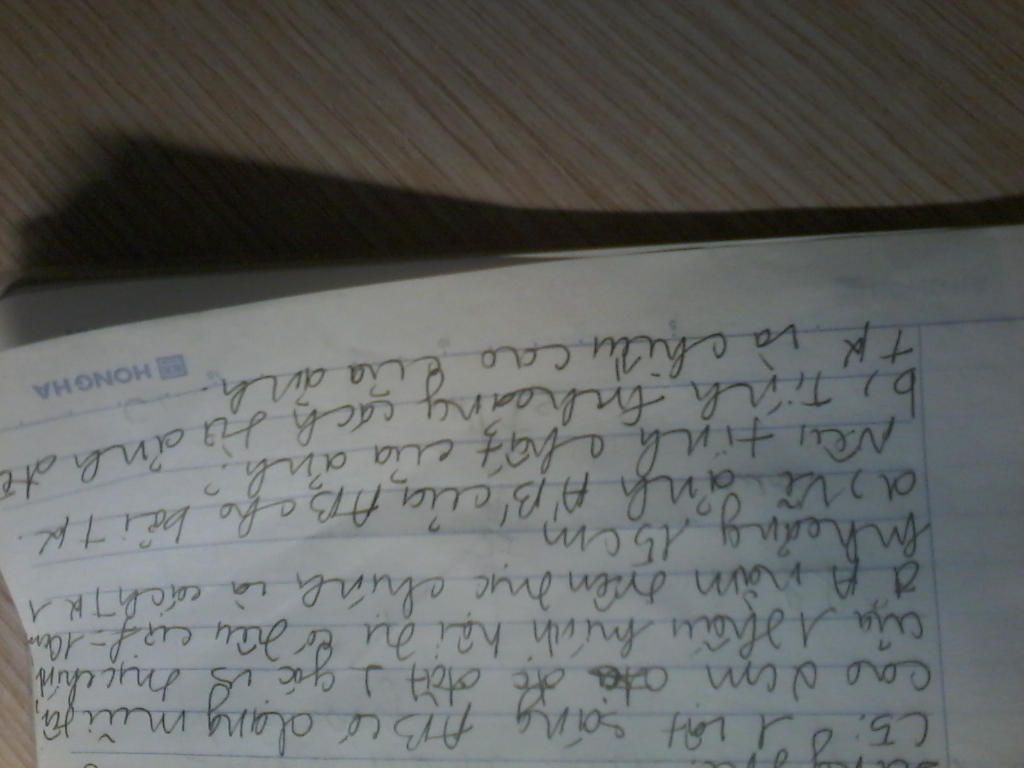 C5: 1 vật sáng AB có dạng mũi tên,
cao 2cm đc đặt ⊥ góc vs trục chính
của 1 thấu kính hội tụ có tiêu cự f=
A nằm trên trục chính và cách TK 1
khoảng 15cm
a, vẽ ảnh A'B' của AB cho bởi TK.
Nêu tính chất của ảnh?
b, Tính khoảng cách từ ảnh đến
TK và chiều cao của ảnh.
HONG HA